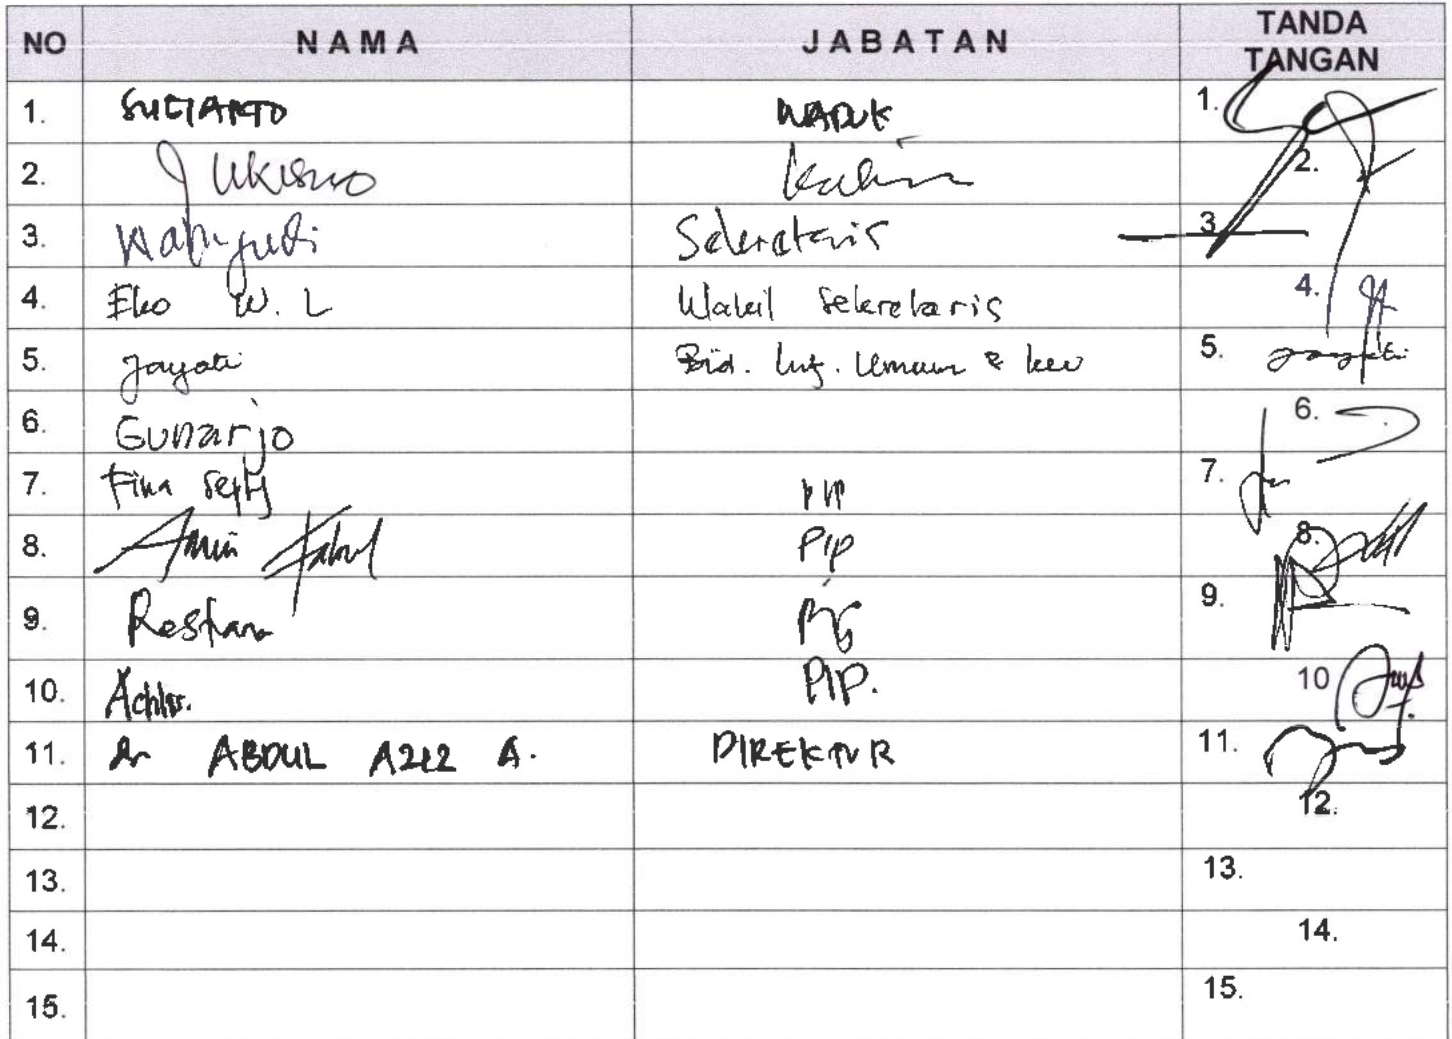 NO NAMA JABATAN TANDA TANGAN
1. SUGIARTO WADUK 1.
2. Jukisno 2.
3. Wahyudi Sekretaris 3
4. Eko W. L Wakil Sekretaris 4.
5. Jayati Bid. Umum & keu 5. Jayati
6. Gunarjo 6.
7. Fina Septy PIP 7.
8. Amin Kabul PIP 8.
9. Restiana 9.
10. PIP. 10
11. dr ABDUL AZIZ A. DIREKTUR 11.
12. 12.
13. 13.
14. 14.
15. 15.